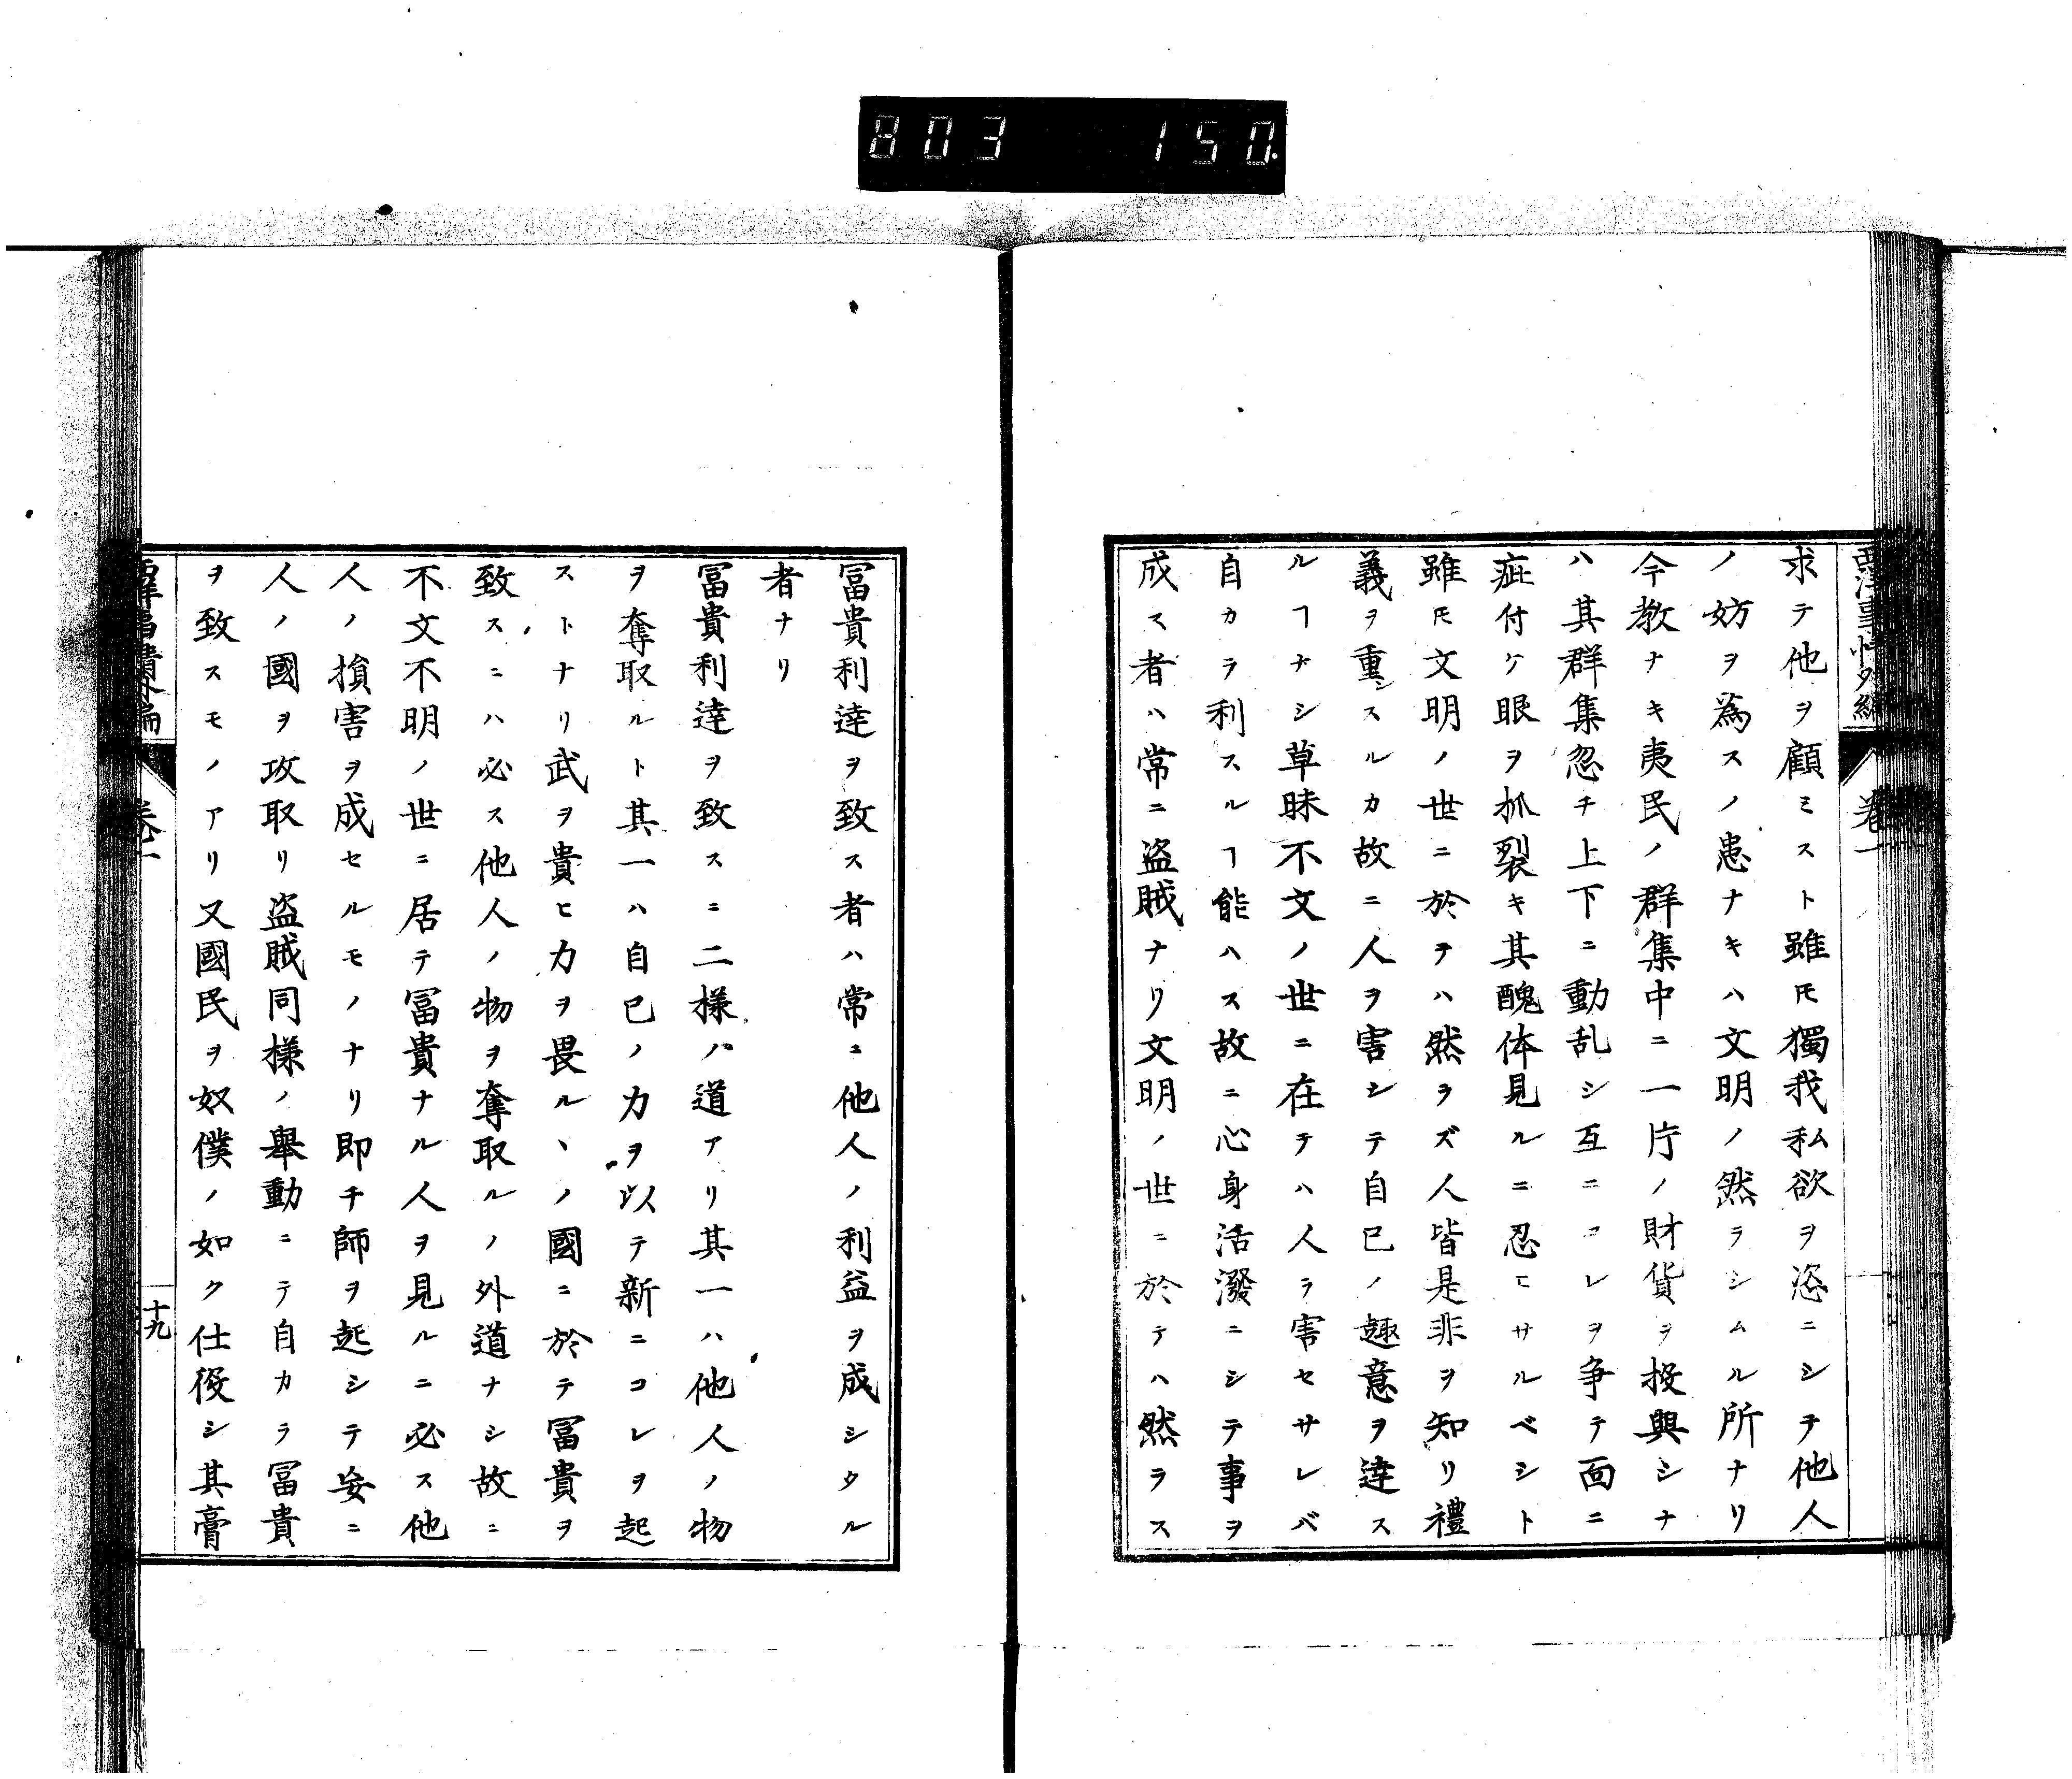 803 150.
西洋事情外編
卷一
求テ他ヲ顧ミスト雖𪜈獨我私欲ヲ恣ニシテ他人
ノ妨ヲ為スノ患ナキハ文明ノ然ラシムル所ナリ
今教ナキ夷民ノ群集中ニ一片ノ財貨ヲ投與シナ
ハ其群集忽チ上下ニ動乱シ互ニコレヲ争テ面ニ
疵付ケ眼ヲ抓裂キ其醜体見ルニ忍ヒサルベシト
雖𪜈文明ノ世ニ於テハ然ラズ人皆是非ヲ知リ禮
義ヲ重シスルカ故ニ人ヲ害シテ自己ノ趣意ヲ達ス
ルヿナシ草昧不文ノ世ニ在テハ人ヲ害セサレバ
自カラ利スルヿ能ハス故ニ心身活潑ニシテ事ヲ
成ス者ハ常ニ盗賊ナリ文明ノ世ニ於テハ然ラス
冨貴利達ヲ致ス者ハ常ニ他人ノ利益ヲ成シタル
者ナリ
冨貴利達ヲ致スニ二様ノ道アリ其一ハ他人ノ物
ヲ奪取ルト其一ハ自己ノ力ヲ以テ新ニコレヲ起
ストナリ武ヲ貴ヒ力ヲ畏ルヽノ國ニ於テ冨貴ヲ
致スニハ必ス他人ノ物ヲ奪取ルノ外道ナシ故ニ
不文不明ノ世ニ居テ冨貴ナル人ヲ見ルニ必ス他
人ノ損害ヲ成セルモノナリ即チ師ヲ起シテ妄ニ
人ノ國ヲ攻取リ盗賊同様ノ舉動ニテ自カラ冨貴
ヲ致スモノアリ又國民ヲ奴僕ノ如ク仕役シ其膏
卷一
十九